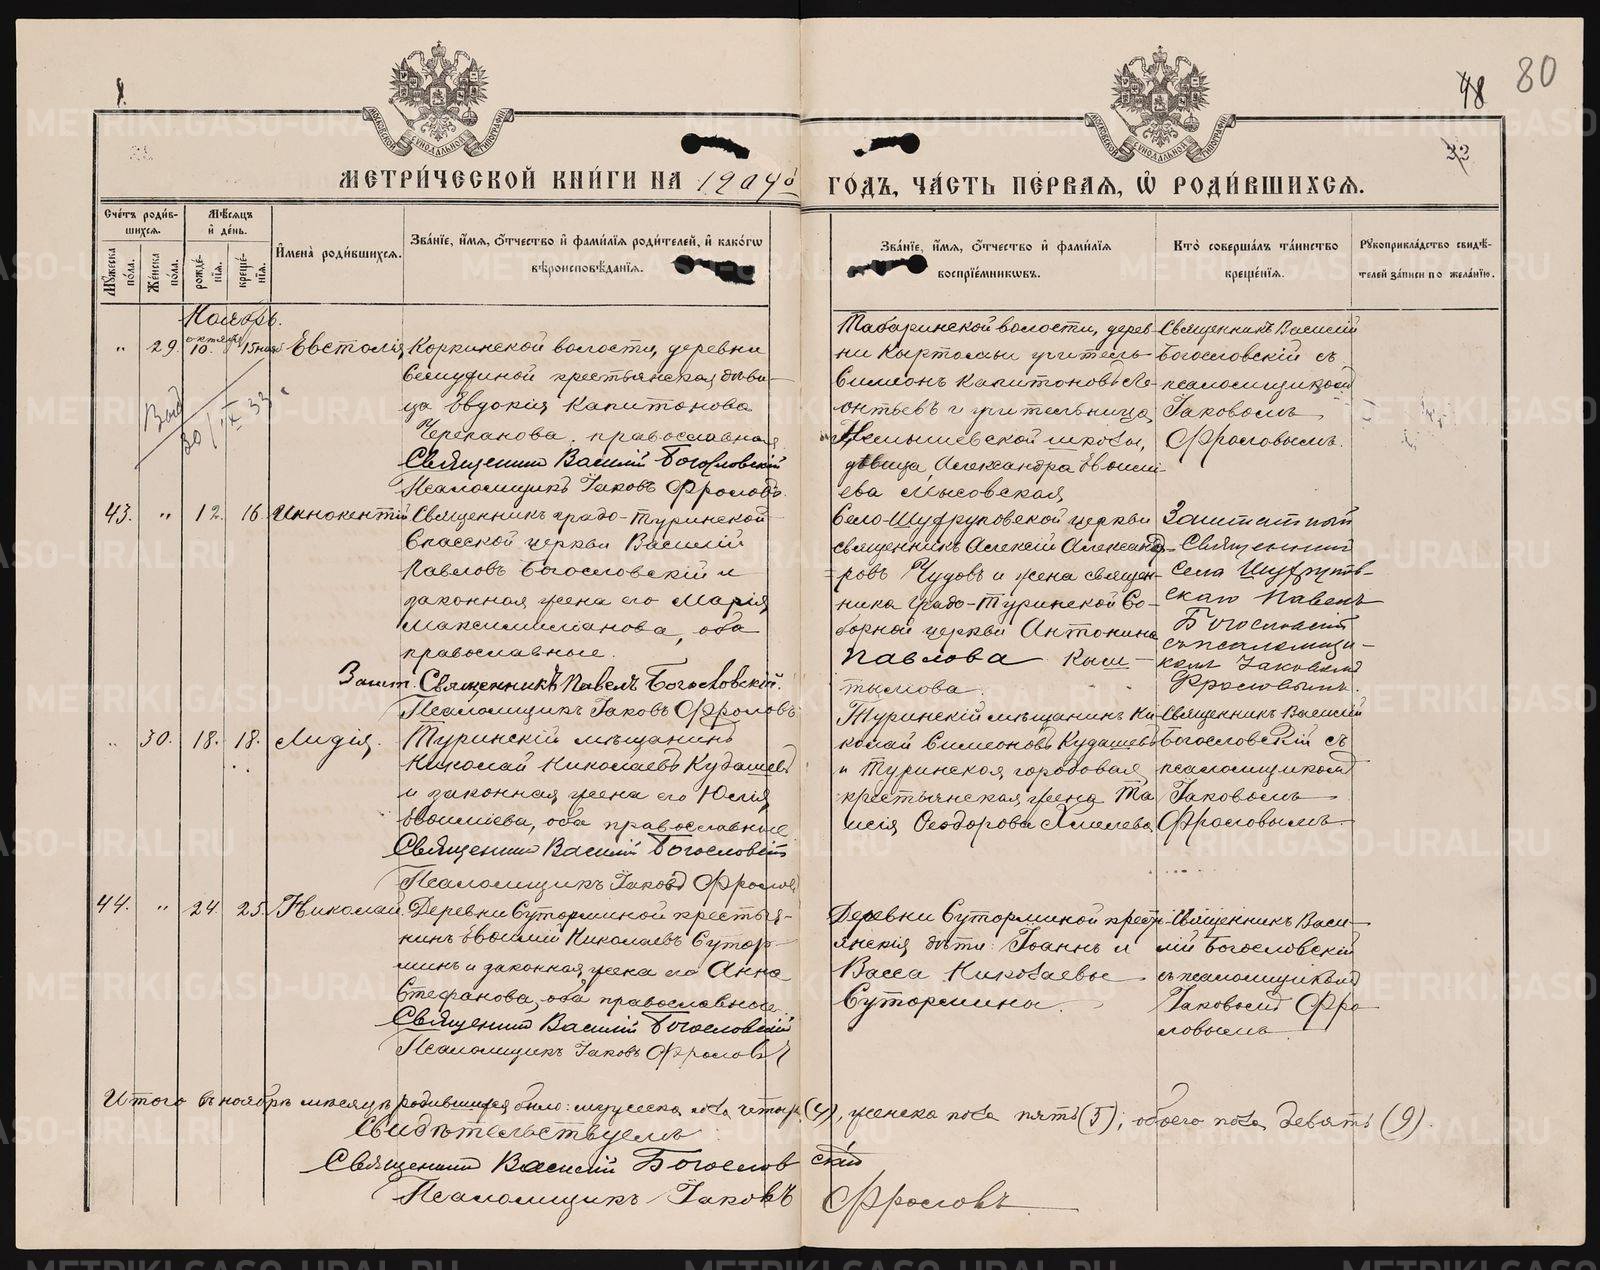 80
48
22
МЕТРИ́ЧЕСКОЙ КНИ́ГИ НА 1904й ГО́ДЪ, ЧА́СТЬ ПЕ́РВАЯ, Ѡ҆ РОДИ́ВШИХСЯ.
МОСКОВСКОЙ СѴНОДАЛЬНОЙ ТИПОГРАФІИ
МОСКОВСКОЙ СѴНОДАЛЬНОЙ ТИПОГРАФІИ
Сче́тъ роди́вшихся.
Мꙋ́жеска по́ла.
Же́нска по́ла.
Мѣ́сяцъ и҆ де́нь.
рожде́нїя.
креще́нїя.
И҆мена̀ роди́вшихся.
Зва́нїе, и҆́мя, ѻ҆́тчество и҆ фами́лїя роди́телей, и҆ како́гѡ вѣроисповѣ́данїя.
Зва́нїе, и҆́мя, ѻ҆́тчество и҆ фами́лїя воспрїе́мникѡвъ.
Кто̀ соверша́лъ та́инство креще́нїя.
Рꙋкоприкла́дство свидѣ́телей за́писи по жела́нїю.
Ноябрь.
„ 29. октября 10. 15 нояб Евстолія
Коркинской волости, деревни
Семухиной крестьянская дѣви-
ца Евдокія Капитонова
Черепанова, православная
Священникъ Василій Богословскій
Псаломщикъ Іаковъ Фроловъ.
Выд
30/IX 33
Табаринской волости, дерев
ни Кыртомьи учитель
Симеонъ Капитоновъ Ле-
онтьевъ и учительница
школы,
дѣвица Александра Евѳимі-
ева Мысовская
Священникъ Василій
Богословскій съ
псаломщикомъ
Іаковомъ
Фроловымъ.
43. „ 12. 16. Иннокентій
Священникъ градо-Туринской
Спасской церкви Василій
Павловъ Богословскій и
законная жена его Марія
Максимиліанова, оба
православные.
Зашт. Священникъ Павелъ Богословскій.
Псаломщикъ Іаковъ Фроловъ
Село-Шухруповской церкви
священникъ Алексій Александ-
ровъ Чудовъ и жена священ-
ника градо-Туринской Со-
борной церкви Антонина
Павлова Кыш-
тымова.
Заштатный
Священникъ
села Шухрупов-
скаго Павелъ
Богословскій
съ псаломщи-
комъ Іаковомъ
Фроловымъ.
„ 30. 18. 18. Лидія.
Туринскій мѣщанинъ
Николай Николаевъ Кудашевъ
и законная жена его Юлія
Евѳиміева, оба православные
Священникъ Василій Богословскій
Псаломщикъ Іаковъ Фроловъ
Туринскій мѣщанинъ Ни-
колай Симеоновъ Кудашевъ
и Туринская городовая
крестьянская жена Та
исія Ѳеодорова Хмелева
Священникъ Василій
Богословскій съ
псаломщикомъ
Іаковомъ
Фроловымъ
44. „ 24. 25. Николай
Деревни Суторминой крестья-
нинъ Евѳимій Николаевъ Сутор-
минъ и законная жена его Анна
Стефанова, оба православные
Священникъ Василій Богословскій
Псаломщикъ Іаковъ Фроловъ
Деревни Суторминой крест-
янскія дѣти: Іоаннъ и
Васса Николаевы
Сутормины.
Священникъ Васи-
лій Богословскій
съ псаломщикомъ
Іаковомъ Фро
ловымъ
Итого въ ноябрѣ мѣсяцѣ родившихся было: мужеска пола четыре (4), женска пола пять (5); обоего пола девять (9).
Свидѣтельствуемъ:
Священникъ Василій Богословскій
Псаломщикъ Іаковъ Фроловъ
METRIKI.GASO-URAL.RU